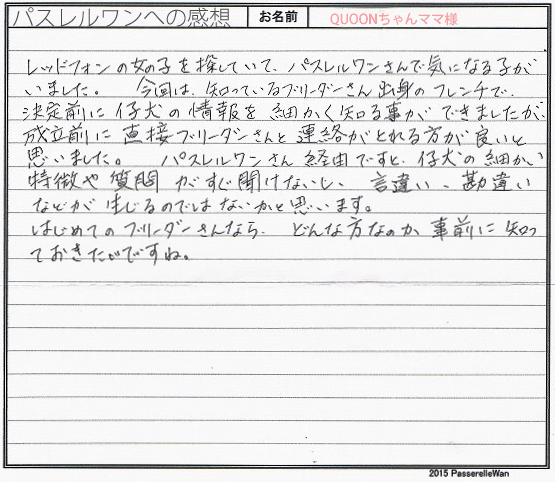 パスレルワンへの感想 お名前 QUOONちゃんママ様
レッドフォンの女の子を探していて、パスレルワンさんで気になる子が
いました。 今回は、知っているブリーダーさん出身のフレンチで、
決定前に仔犬の情報を細かく知る事ができましたが、
成立前に直接ブリーダーさんと連絡がとれる方が良いと
思いました。 パスレルワンさん経由ですと、仔犬の細かい
特徴や質問がすぐ聞けないし、言違い、勘違い
などが生じるのではないかと思います。
はじめてのブリーダーさんなら、どんな方なのか事前に知っ
ておきたいですね。
2015 PasserelleWan